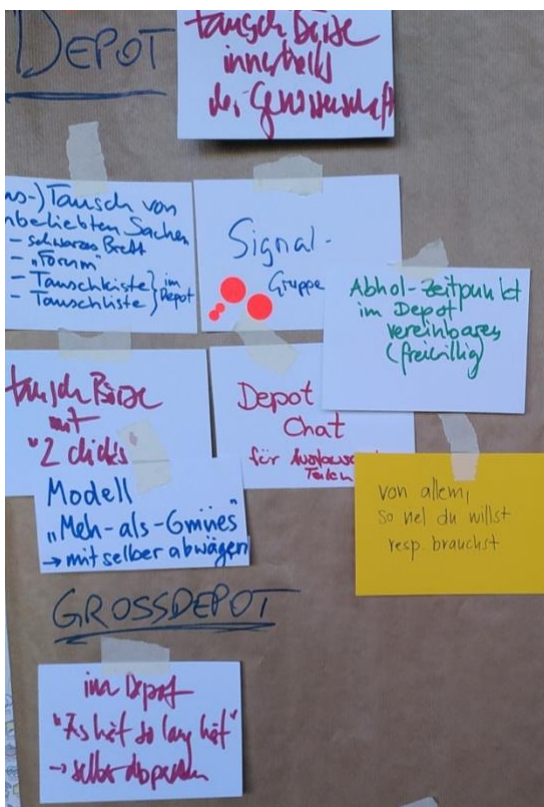 DEPOT
tausch Börse
innerhalb
der Genossenschaft
Tausch von
nbeliebten Sachen
- schwarzes Brett
- "Forum"
- Tauschkiste } im
- Tauschliste } Depot
Signal-
Gruppe
Abhol-Zeitpunkt
im Depot
vereinbaren
(freiwillig)
tausch Börse
mit
"2 clicks
Depot
Chat
für
Teilen
Modell
"Meh-als-Gmües"
→ mit selber abwägen
von allem,
so viel du willst
resp. brauchst
GROSSDEPOT
im Depot
"Es hät so lang hät"
→ selbst abpacken